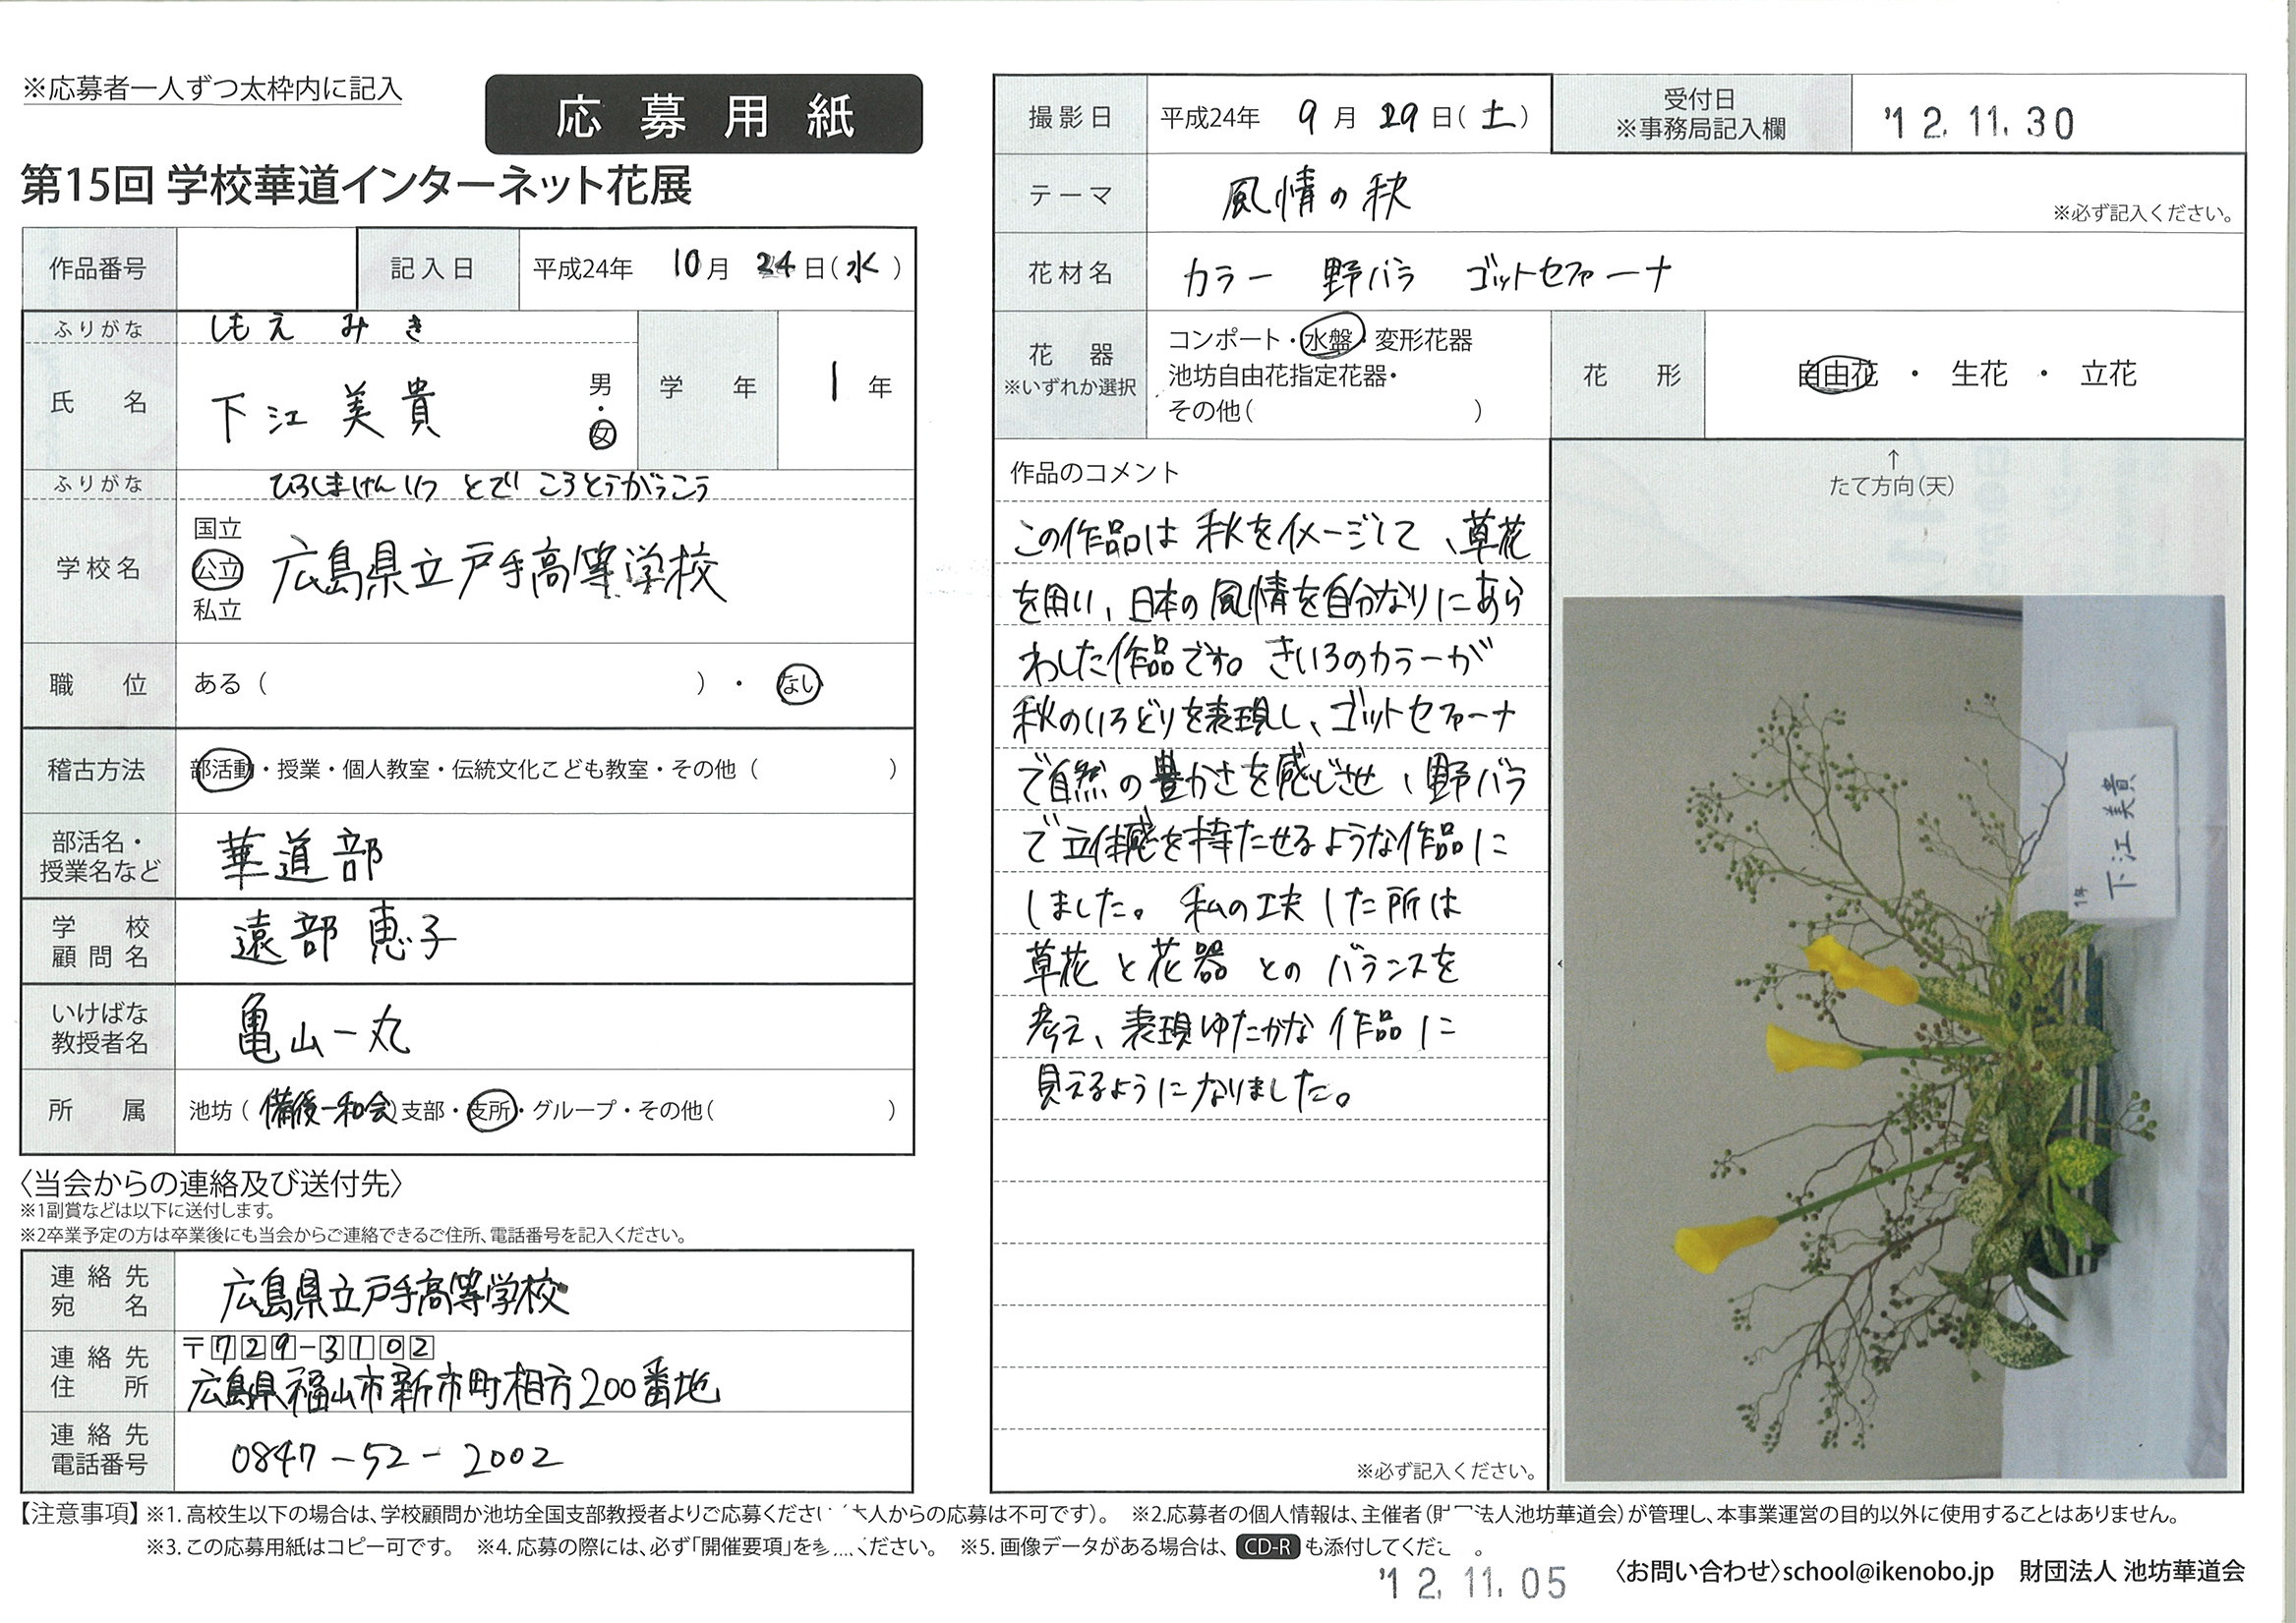 ※応募者一人ずつ太枠内に記入
応募用紙
第15回 学校華道インターネット花展
作品番号
記入日 平成24年 10月 24日(水)
ふりがな しもえ みき
氏名 下江 美貴 男・女
学年 1年
ふりがな ひろしまけんりつ とでこうとうがっこう
学校名 国立 公立 私立 広島県立戸手高等学校
職位 ある( )・ない
稽古方法 部活動・授業・個人教室・伝統文化こども教室・その他( )
部活名・授業名など 華道部
学校顧問名 遠部 恵子
いけばな教授者名 亀山一丸
所属 池坊(備後一和会)支部・支所・グループ・その他( )
〈当会からの連絡及び送付先〉
※1副賞などは以下に送付します。
※2卒業予定の方は卒業後にも当会からご連絡できるご住所、電話番号を記入ください。
連絡先宛名 広島県立戸手高等学校
連絡先住所 〒729-3102
広島県福山市新市町相方200番地
連絡先電話番号 0847-52-2002
撮影日 平成24年 9月 29日(土)
受付日 ※事務局記入欄 '12.11.30
テーマ 風情の秋 ※必ず記入ください。
花材名 カラー 野バラ ゴットセファーナ
花器 ※いずれか選択
コンポート・水盤・変形花器
池坊自由花指定花器・
その他( )
花形 自由花・生花・立花
作品のコメント
この作品は秋をイメージして、草花
を用い、日本の風情を自分なりにあら
わした作品です。きいろのカラーが
秋のいろどりを表現し、ゴットセファーナ
で自然の豊かさを感じさせ、野バラ
で立体感を持たせるような作品に
しました。私の工夫した所は
草花と花器とのバランスを
考え、表現ゆたかな作品に
見えるようになりました。
※必ず記入ください。
↑
たて方向(天)
1年
下江 美貴
【注意事項】※1.高校生以下の場合は、学校顧問か池坊全国支部教授者よりご応募ください 人からの応募は不可です)。 ※2.応募者の個人情報は、主催者(財 法人池坊華道会)が管理し、本事業運営の目的以外に使用することはありません。
※3.この応募用紙はコピー可です。 ※4.応募の際には、必ず「開催要項」を ください。 ※5.画像データがある場合は、CD-Rも添付してくだ 。
'12.11.05
〈お問い合わせ〉school@ikenobo.jp 財団法人 池坊華道会